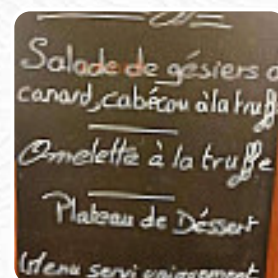 Salade de gésiers
canard, cabécou à la truff
Omelette à la truffe
Plateau de Déssert
Menu servi uniquement